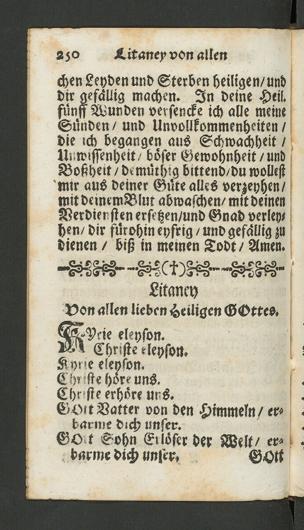 250 Litaney von allen
chen Leyden und Sterben heiligen / und
dir gefällig machen. In deine Heil.
fünff Wunden versencke ich alle meine
Sünden / und Unvollkommenheiten /
die ich begangen aus Schwachheit /
Unwissenheit / böser Gewohnheit / und
Boßheit / demüthig bittend / du wollest
mir aus deiner Güte alles verzeyhen /
mit deinem Blut abwaschen / mit deinen
Verdiensten ersetzen / und Gnad verley-
hen / dir fürohin eyfrig / und gefällig zu
dienen / biß in meinen Todt / Amen.
Litaney
Von allen lieben Heiligen GOttes.
KYrie eleyson.
Christe eleyson.
Kyrie eleyson.
Christe höre uns.
Christe erhöre uns.
GOtt Vatter von den Himmeln / er-
barme dich unser.
GOtt Sohn Erlöser der Welt / er-
barme dich unser. GOtt